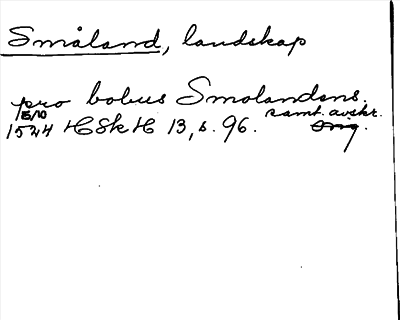 Småland, landskap
pro bobus Smolandens.
5/10 samt. avskr.
1524 HSkH 13, s. 96. Orig.